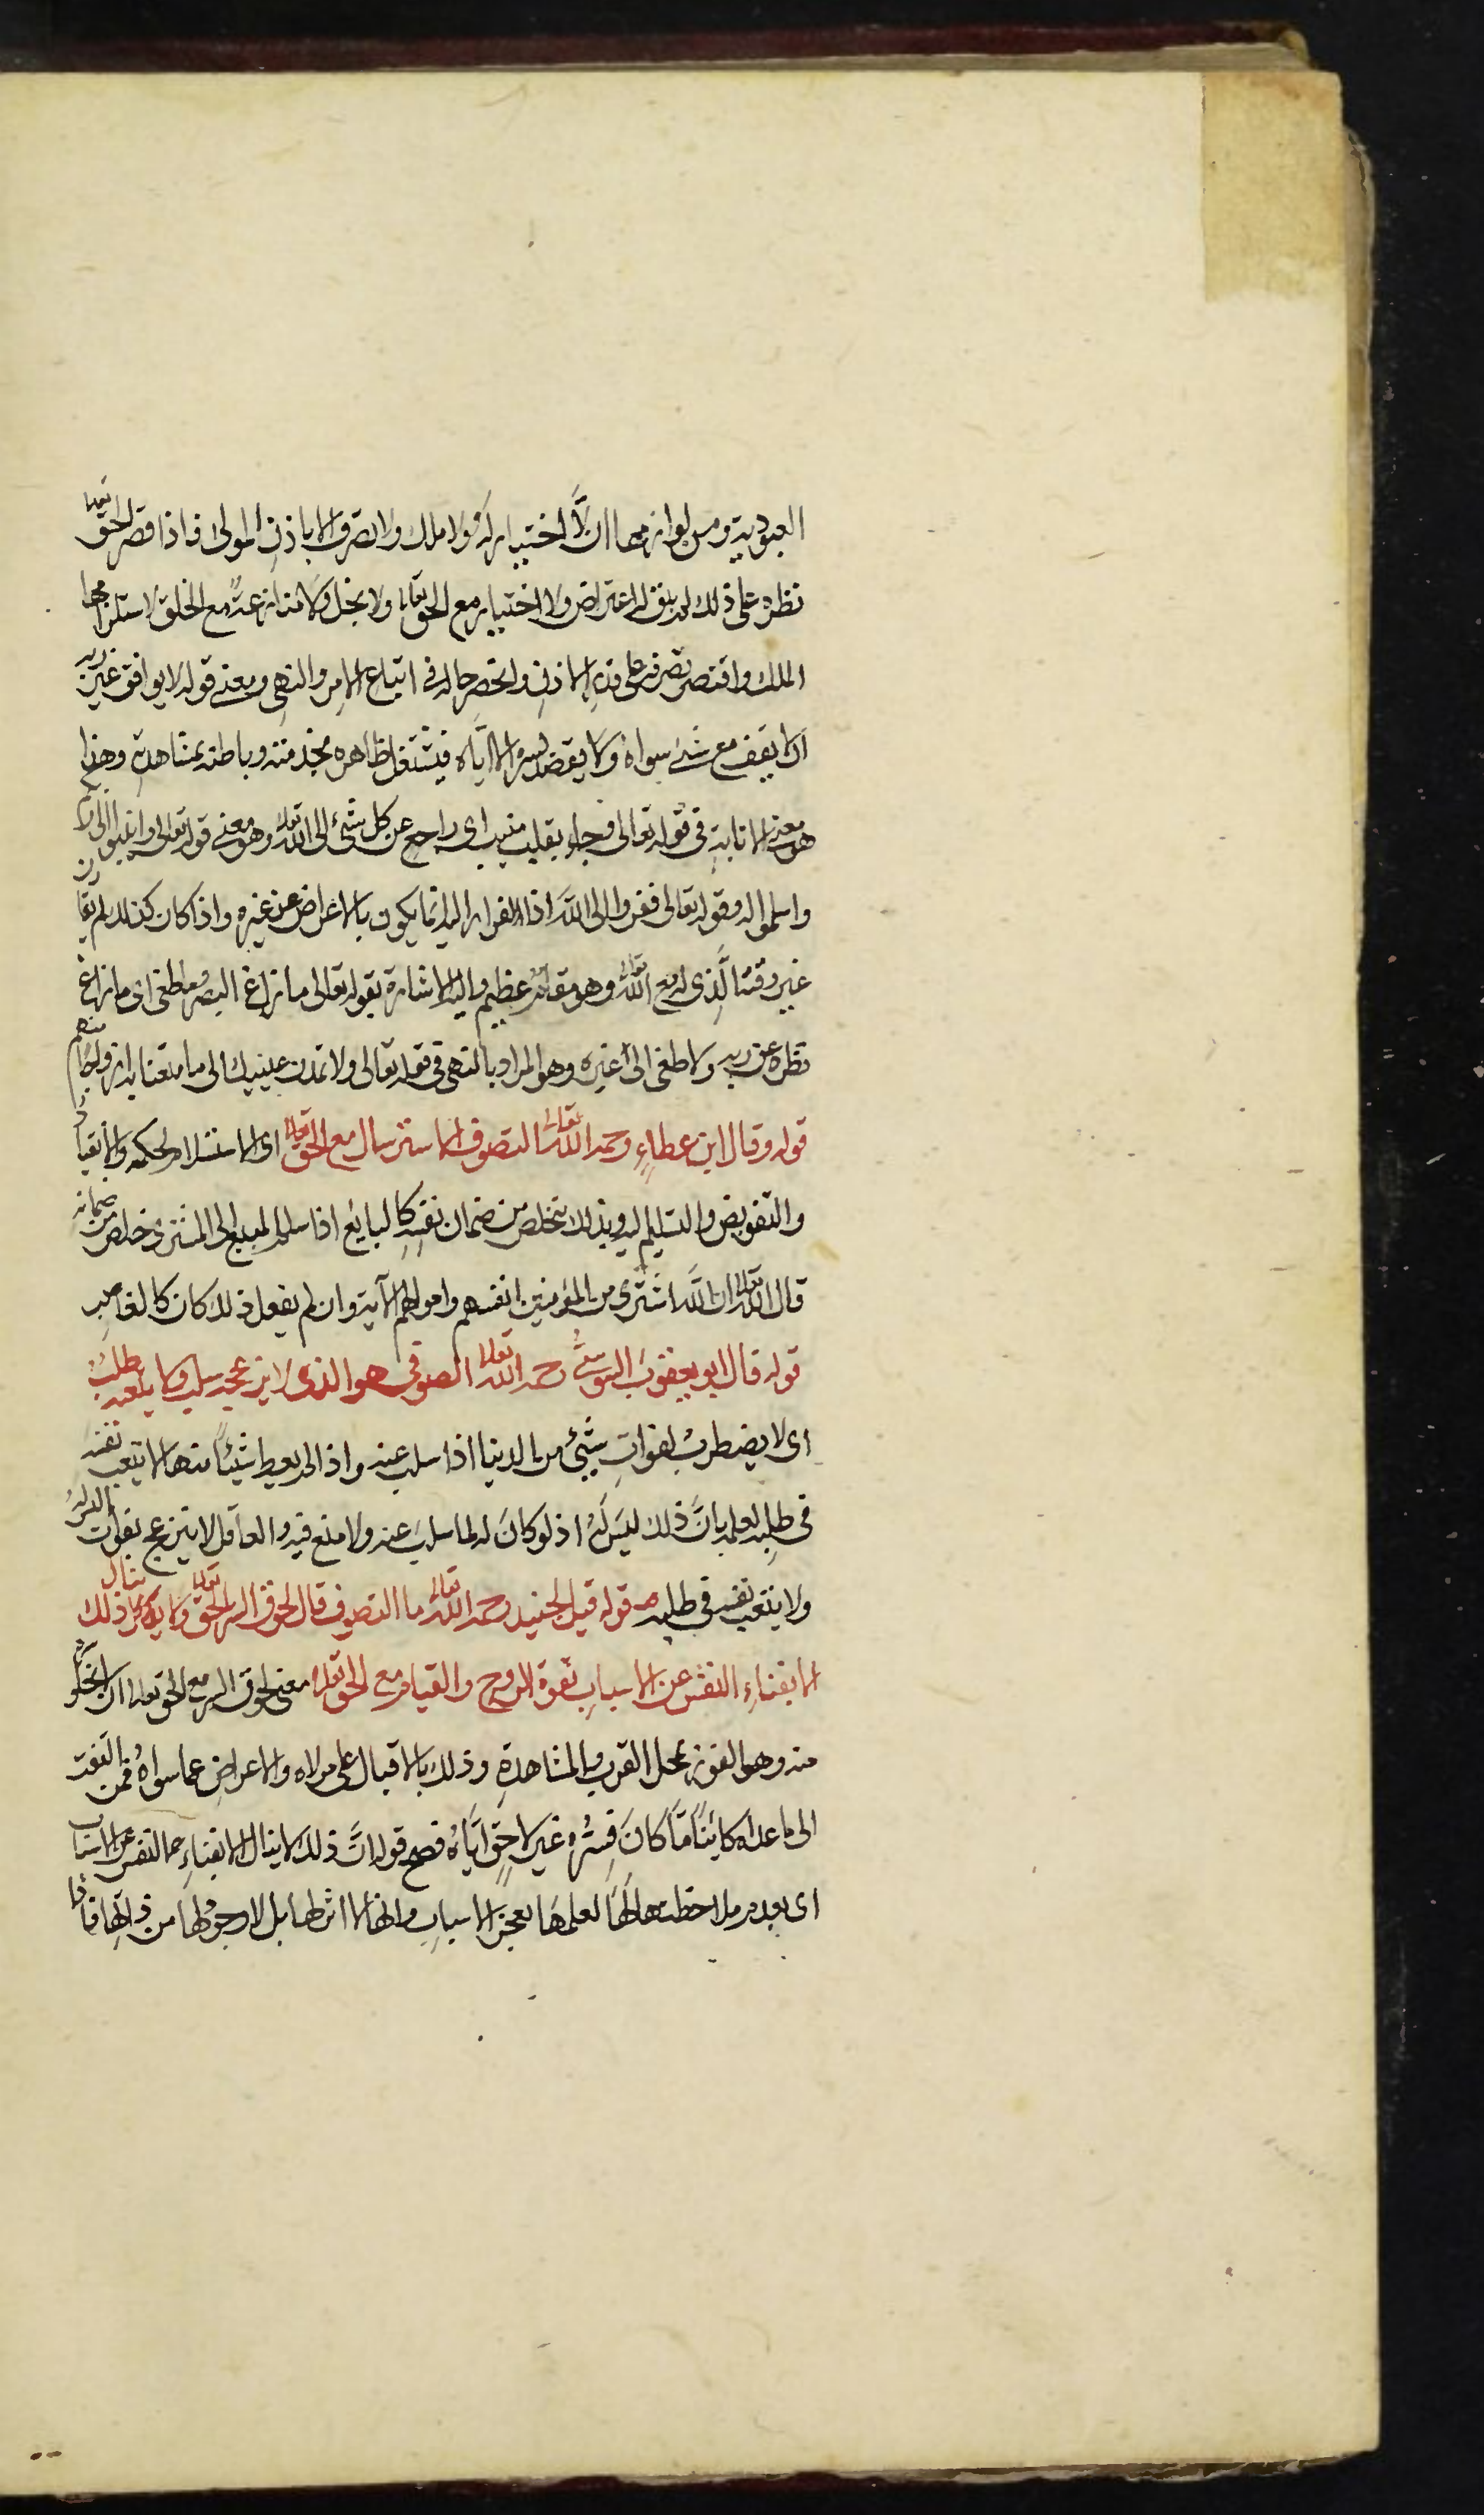 العبودية ومن لوازمها ان لا اختيار له ولا ملك ولا تصرف الا باذن المولى فاذا قصر الحق تعالى
نظره على ذلك لم يبق له اعتراض ولا اختيار مع الحق تعالى ولا بخل ولا منازعة مع الخلق لاستلزامها
الملك واقتصر تصرفه على قدر الاذن وانحصر حاله في اتباع الامر والنهى ومعنى قوله لا يوافق غير ربه
ان لا يقف مع شئ سواه ولا يقصد بسره الا اياه فيشتغل ظاهره بخدمته وباطنه بمشاهدته وهذا
هو معنى الانابة في قوله تعالى وجاء بقلب منيب اى راجع عن كل شئ الى الله تعالى وهو معنى قوله تعالى وانيبوا الى ربكم
واسلموا له وقوله تعالى ففروا الى الله اذ الفرار اليه انما يكون بالاعراض عن غيره واذا كان كذلك لم يقارن
غير وقته الذى له مع الله تعالى وهو مقام عظيم واليه الاشارة بقوله تعالى ما زاغ البصر وما طغى اى ما زاغ
نظره عن ربه ولا طغى الى غيره وهو المراد بالنهى في قوله تعالى ولا تمدن عينيك الى ما متعنا به ازواجا منهم
قوله وقال ابن عطاء رحمه الله تعالى التصوف الاسترسال مع الحق تعالى اى الاستسلام لحكمه والانقياد
والتفويض والتسليم اليه وبذلك يتخلص من ضمان نفسه كالبايع اذا سلم المبيع الى المشترى خلص من ضمانه
قال الله تعالى ان الله اشترى من المؤمنين انفسهم واموالهم الآية وان لم يفعل ذلك كان كالغاصب
قوله قال ابو يعقوب السوسى رحمه الله تعالى الصوفى هو الذى لا يزعجه سلب ولا يتعبه طلب
اى لا يضطرب لفوات شئ من الدنيا اذا سلب عنه واذا لم يعط شيئا منها لا يتعب نفسه
في طلبه لعلمه بان ذلك ليس له اذ لو كان له لما سلب عنه ولا منع فيه والعاقل لا ينزعج بفوات ما ليس له
ولا يتعب نفسه في طلبه قوله قيل للجنيد رحمه الله تعالى ما التصوف قال لحوق السر بالحق تعالى ولا ينال ذلك
الا بفناء النفس عن الاسباب بقوة الروح والقيام مع الحق تعالى معنى لحوق السر مع الحق تعالى ان لا يخلو سره
منه وهو الفوز بمحل القرب والمشاهدة وذلك بالاقبال على مولاه والاعراض عما سواه فمن التفت
الى ما عداه كائنا ما كان فسره غير لاحق اياه فصح قوله ان ذلك لا ينال الا بفناء النفس عن الاسباب
اى بعدم ملاحظتها لها لعلمها بعجز الاسباب وانها لا اثر لها بل لا وجود لها من ذاتها فاذا